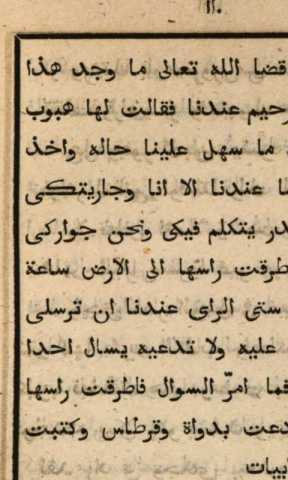 ١١٠
قضا الله تعالى ما وجد هذا
رحيم عندنا فقالت لها هبوب
ما سهل علينا حاله واخذ
ما عندنا الا انا وجاريتكى
يتكلم فيكى ونحن جواركى
طرقت راسها الى الارض ساعة
ستى الراى عندنا ان ترسلى
عليه ولا تدعيه يسال احدا
فما امرّ السوال فاطرقت راسها
دعت بدواة وقرطاس وكتبت
ابيات